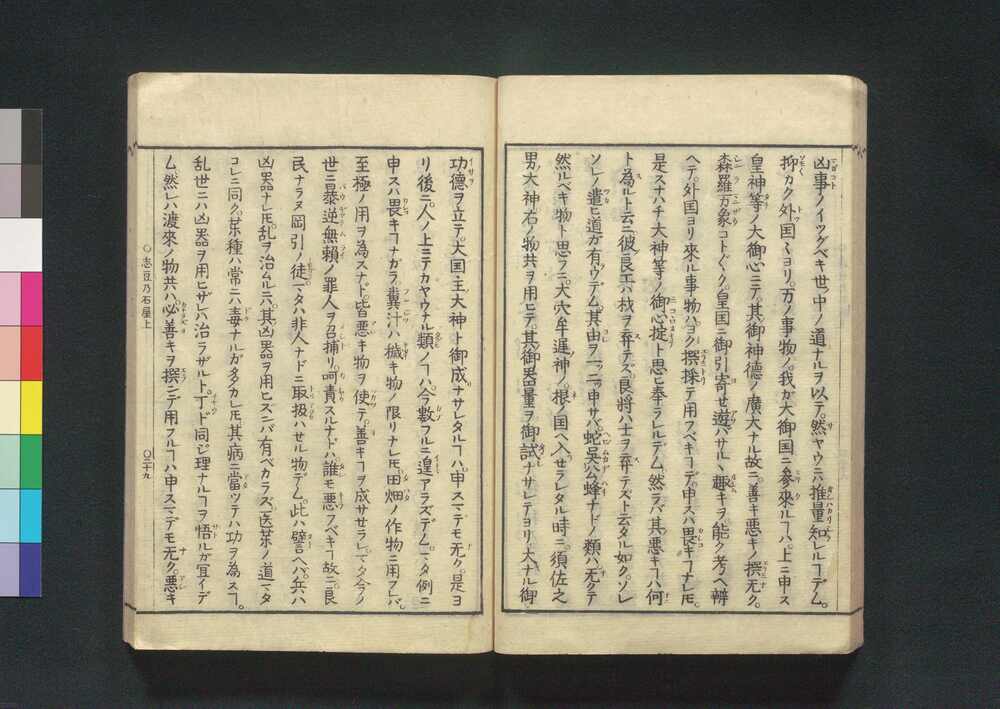 凶事ノイツグベキ世ノ中ノ道ナルヲ以テ。然ヤウニハ推量知レルヿデム。
抑カク外国ヽヨリ。万ノ事物ノ。我ガ大御国ニ参来ルヿハ。上ニ申ス
皇神等ノ大御心ニテ。其御神徳ノ廣大ナル故ニ。善キ悪キノ撰無ク。
森羅万象コトぐク。皇国ニ御引寄せ遊バサルヽ趣キヲ。能ク考ヘ辨
ヘテ。外国ヨリ来ル事物ハヨク撰採ニテ用フベキヿデ。申スハ畏キヿナレ𪜈。
是スナハチ大神等ノ御心掟ト思ヒ奉ラレルデム。然ラバ其悪キヿハ何
ト為ルト云ニ。彼良工ハ材ヲ弃テズ。良将ハ士ヲ弃テズト云タル如ク。ソレ
ソレノ遣ヒ道ガ有ウデム。其由ヲ一ツ二ツ申サバ。蛇呉公蜂ナドノ類ハ无クテ
然ルベキ物ト思フニ。大穴牟遅神ノ。根ノ国ヘ入せラレタル時ニ。須佐之
男ノ大神右ノ物共ヲ用ヒテ。其御器量ヲ御試ナサレテヨリ。大ナル御
功徳ヲ立テ。大国主大神ト御成ナサレタルヿハ。申スマデモ无ク。是ヨ
リ後ニ。人ノ上ニテカヤウナル類ノヿハ。今数フルニ遑アラズデム。マタ例ニ
申スハ畏キヿナガラ。糞汁ハ穢キ物ノ限リナレ𪜈。田畑ノ作物ニ用フレバ。
至極ノ用ヲ為スナド。皆悪キ物ヲ使テ。善キヿヲ成サせラレ。マタ今ノ
世ニ暴逆無頼ノ罪人ヲ召捕リ。呵責スルナドハ。誰モ悪フベキヿ故ニ。良
民ナラヌ岡引ノ徒。マタハ非人ナドニ取扱ハせル物デム。此ハ譬ヘバ。兵ハ
凶器ナレ𪜈。乱ヲ治ムルニハ。其凶器ヲ用ヒズンバ有ベカラズ。医薬ノ道マタ
コレニ同ク。薬種ハ常ニハ毒ナルガ多カレ𪜈。其病ニ當ツテハ功ヲ為スヿ。
乱世ニハ凶器ヲ用ヒザレバ治ラザルト。丁ド同ジ理ナルヿヲ悟ルガ宜イデ
ム。然レバ渡来ノ物共ハ。必善キヲ撰ンデ用フルヿハ申スマデモ无ク。悪キ
○志豆乃石屋上
○三十九